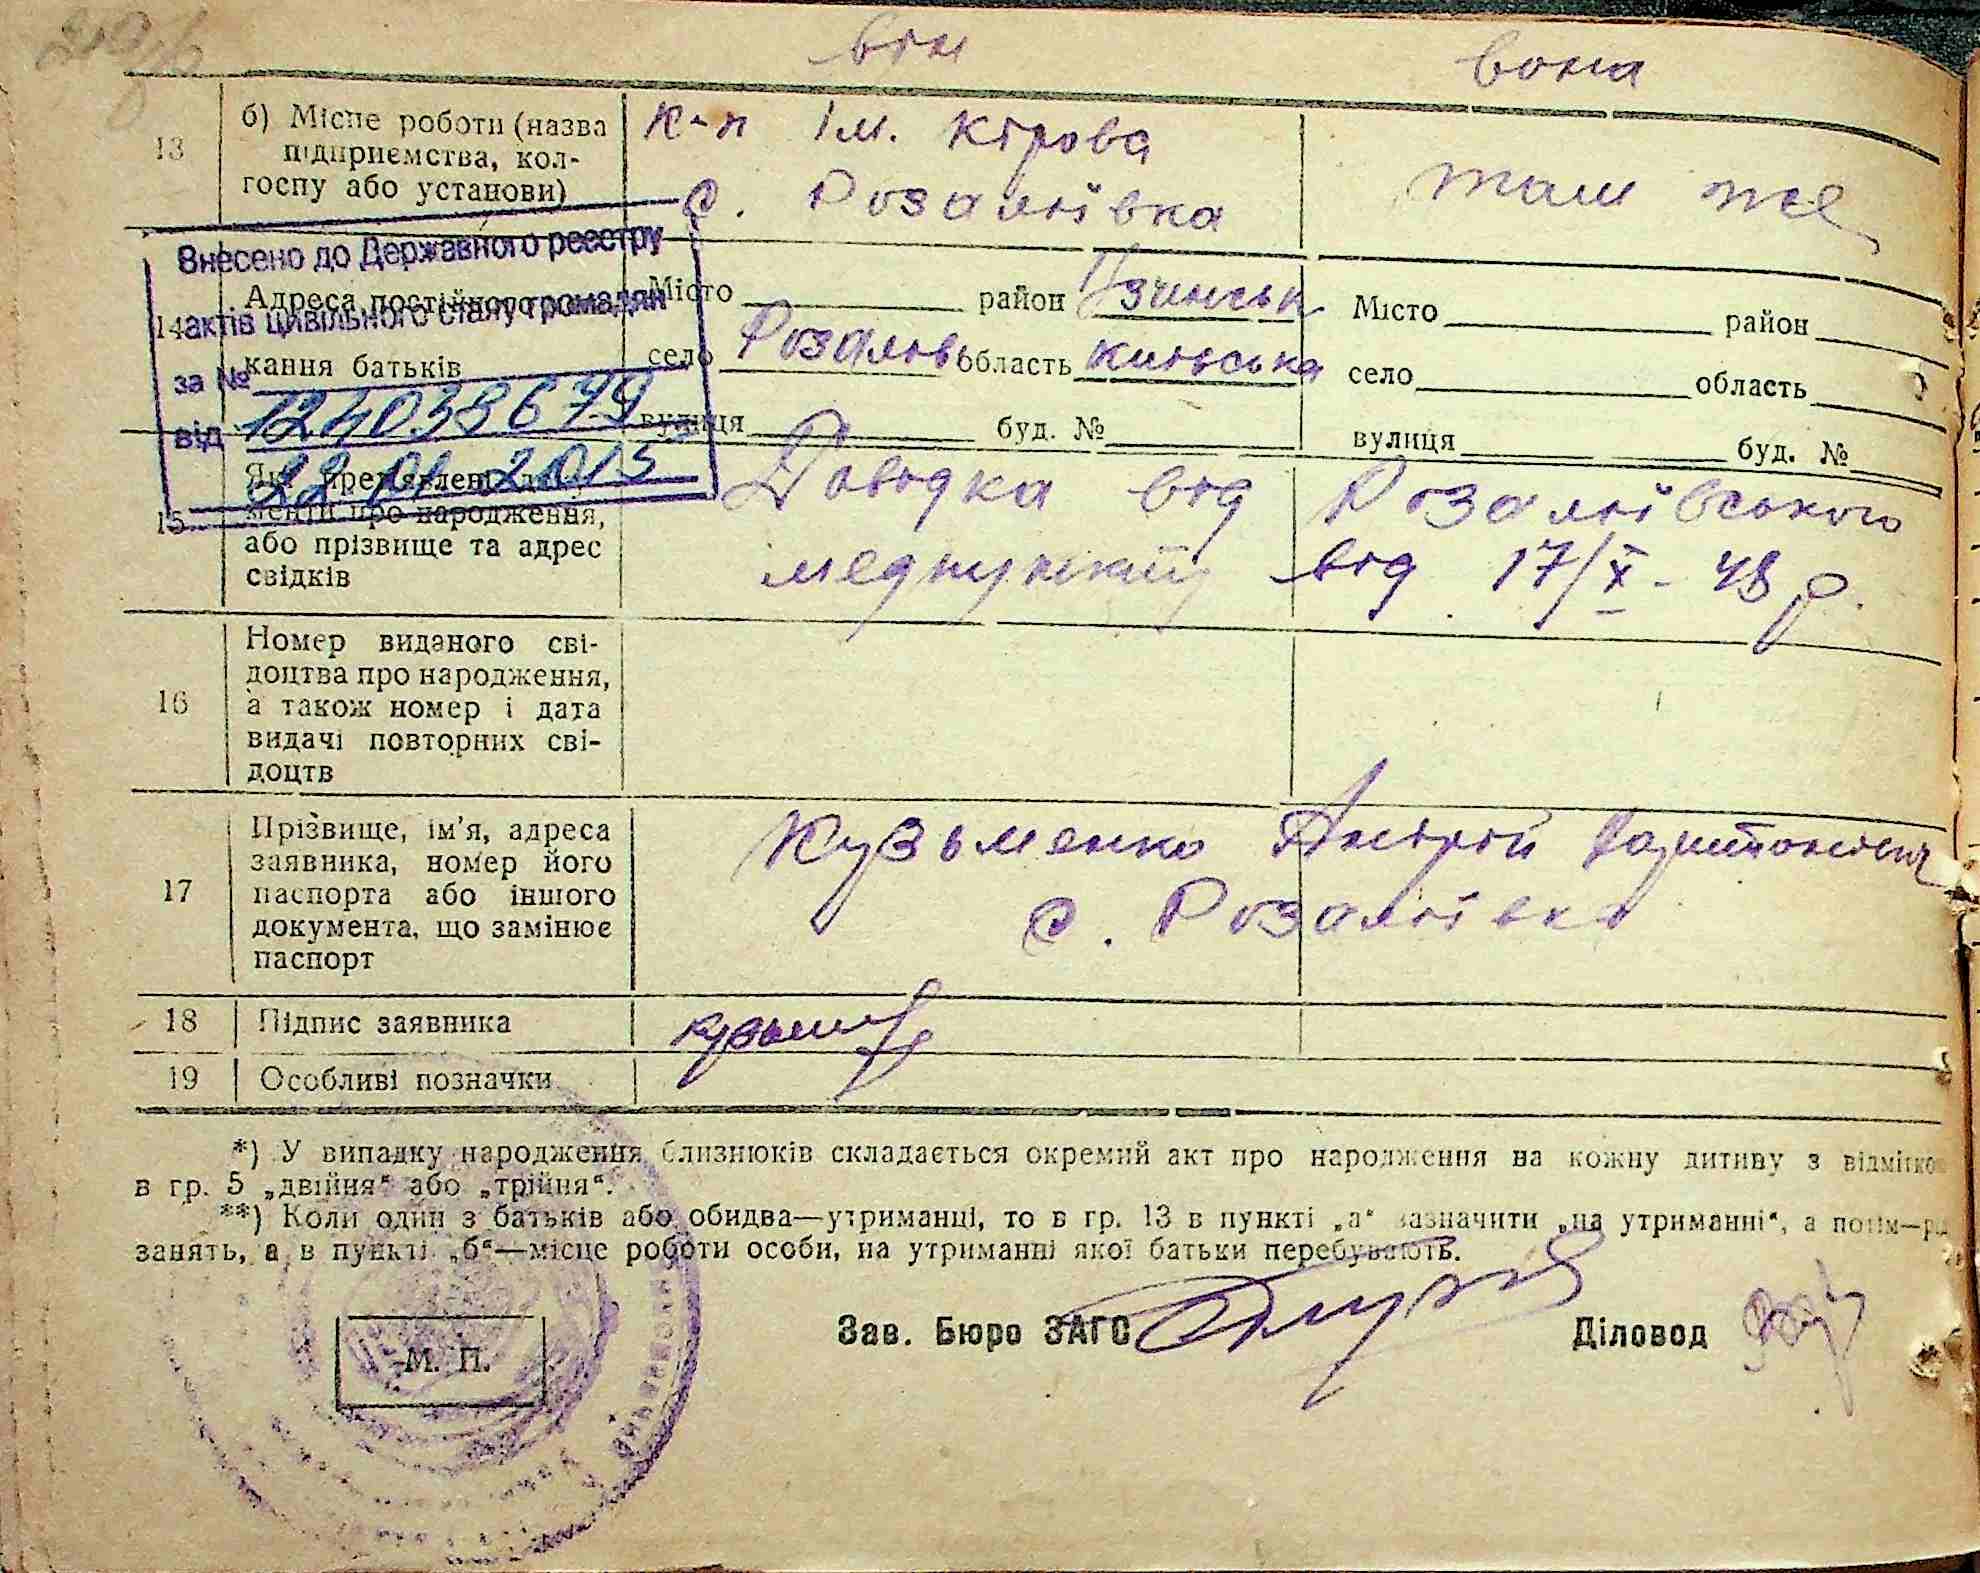 він вона
13 б) Місце роботи (назва
підприємства, кол-
госпу або установи)
к-п ім. Кірова
с. Розаліївка
там же
Внесено до Державного реєстру
актів цивільного стану громадян
за № 124038679
від 22 01 2015
14 Адреса постійного
кання батьків
Місто район Узинськ
село Розалів область Київська
вулиця буд. №
Місто район
село область
вулиця буд. №
15 Які пред'явлені
менти про народження,
або прізвище та адрес
свідків
Довідка від Розаліївського
медпункту від 17/X - 48 р.
16 Номер виданого сві-
доцтва про народження,
а також номер і дата
видачі повторних сві-
доцтв
17 Прізвище, ім'я, адреса
заявника, номер його
паспорта або іншого
документа, що замінює
паспорт
Кузьменко Андрій Харитонович
с. Розаліївка
18 Підпис заявника
19 Особливі позначки
*) У випадку народження близнюків складається окремий акт про народження на кожну дитину з відмітко
в гр. 5 „двійня“ або „трійня“.
**) Коли один з батьків або обидва—утриманці, то в гр. 13 в пункті „а“ зазначити „на утриманні“, а потім—рі
занять, а в пункті „б“—місце роботи особи, на утриманні якої батьки перебувають.
М. П.
Зав. Бюро ЗАГС Діловод